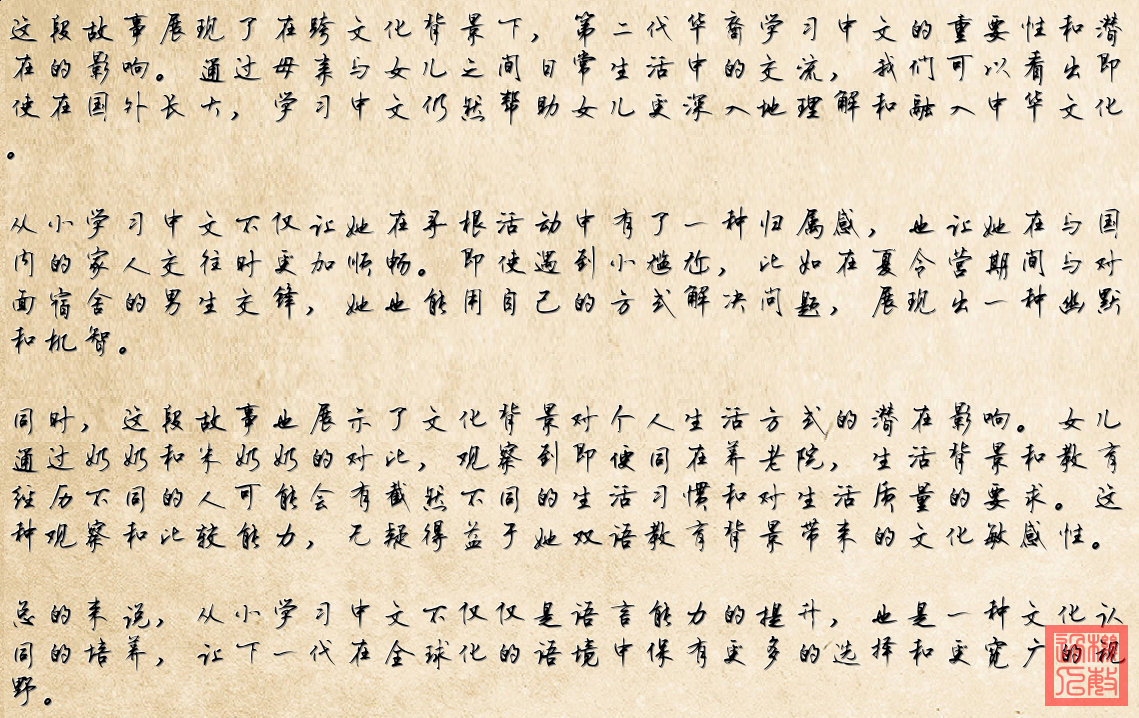 这段故事展现了在跨文化背景下，第二代华裔学习中文的重要性和潜
在的影响。通过母亲与女儿之间日常生活中的交流，我们可以看出即
使在国外长大，学习中文仍然帮助女儿更深入地理解和融入中华文化
。
从小学习中文不仅让她在寻根活动中有了一种归属感，也让她在与国
内的家人交往时更加顺畅。即使遇到小尴尬，比如在夏令营期间与对
面宿舍的男生交锋，她也能用自己的方式解决问题，展现出一种幽默
和机智。
同时，这段故事也展示了文化背景对个人生活方式的潜在影响。女儿
通过奶奶和米奶奶的对比，观察到即便同在养老院，生活背景和教育
经历不同的人可能会有截然不同的生活习惯和对生活质量的要求。这
种观察和比较能力，无疑得益于她双语教育背景带来的文化敏感性。
总的来说，从小学习中文不仅仅是语言能力的提升，也是一种文化认
同的培养，让下一代在全球化的语境中保有更多的选择和更宽广的视
野。